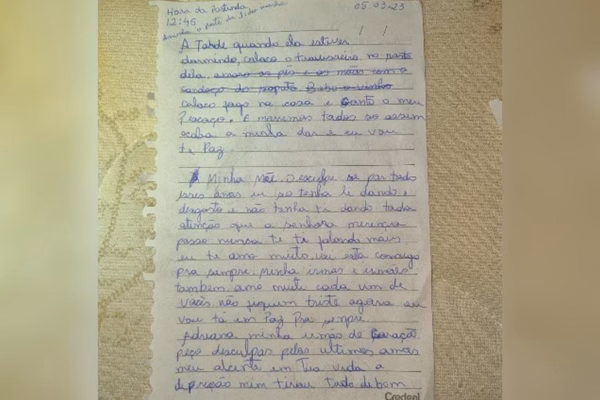 Hora da Partida
12:45
05 03-23
A Tarde quando ela estiver
dormindo, coloco o travesseiro no rosto
dela,
coloco fogo na casa e corto o meu
Pescoço. E morremos todos so assim
acaba a minha dor e eu vou
te Paz
Minha Mãe. Desculpe se por todo
esses anos eu so tenha ti dando
desgosto e não tenha te dando toda
atenção que a senhora mereça
posso nunca te ti falando mais
eu te amo muito, vai esta comigo
pra sempre. Minha irmas e irmãos
também amo muito cada um de
vocês não fiquem triste agora eu
vou tá em Paz Pra sempre.
Adriana minha irmão de Coração
peço desculpas pelos ultimos anos
meu em tua vida a
depreção mim tirou tudo de bom
Credeal